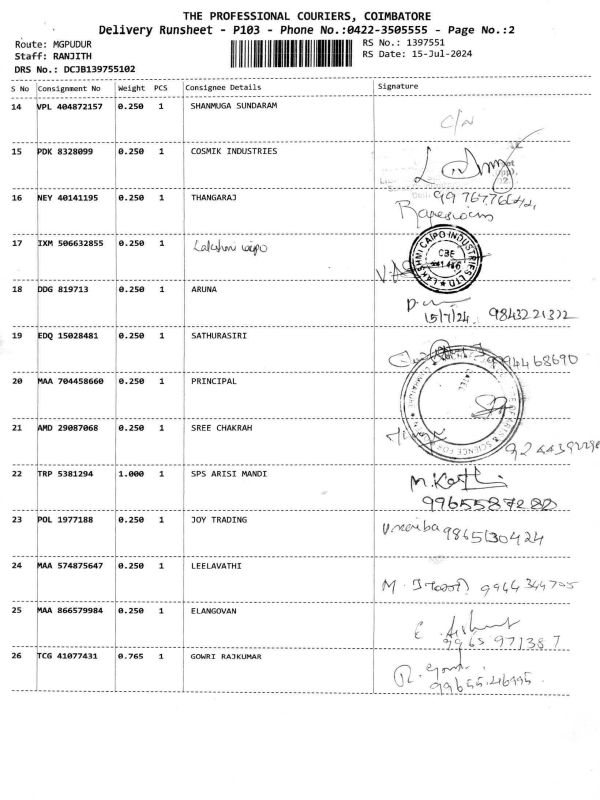 THE PROFESSIONAL COURIERS, COIMBATORE
Delivery Runsheet - P103 - Phone No.:0422-3505555 - Page No.:2
Route: MGPUDUR
RS No.: 1397551
Staff: RANJITH
RS Date: 15-Jul-2024
DRS No.: DCJB139755102
S No Consignment No Weight PCS Consignee Details Signature
14 VPL 404872157 0.250 1 SHANMUGA SUNDARAM
C/N
15 PDK 8328099 0.250 1 COSMIK INDUSTRIES
16 NEY 40141195 0.250 1 THANGARAJ
17 IXM 506632855 0.250 1 Lakshmi caipo
LAKSHMI CAIPO INDUSTRIES LTD
CBE
18 DDG 819713 0.250 1 ARUNA
15/7/24. 9843221322
19 EDQ 15028481 0.250 1 SATHURASIRI
20 MAA 704458660 0.250 1 PRINCIPAL
21 AMD 29087068 0.250 1 SREE CHAKRAH
22 TRP 5381294 1.000 1 SPS ARISI MANDI
23 POL 1977188 0.250 1 JOY TRADING
9865130424
24 MAA 574875647 0.250 1 LEELAVATHI
25 MAA 866579984 0.250 1 ELANGOVAN
9965971387
26 TCG 41077431 0.765 1 GOWRI RAJKUMAR